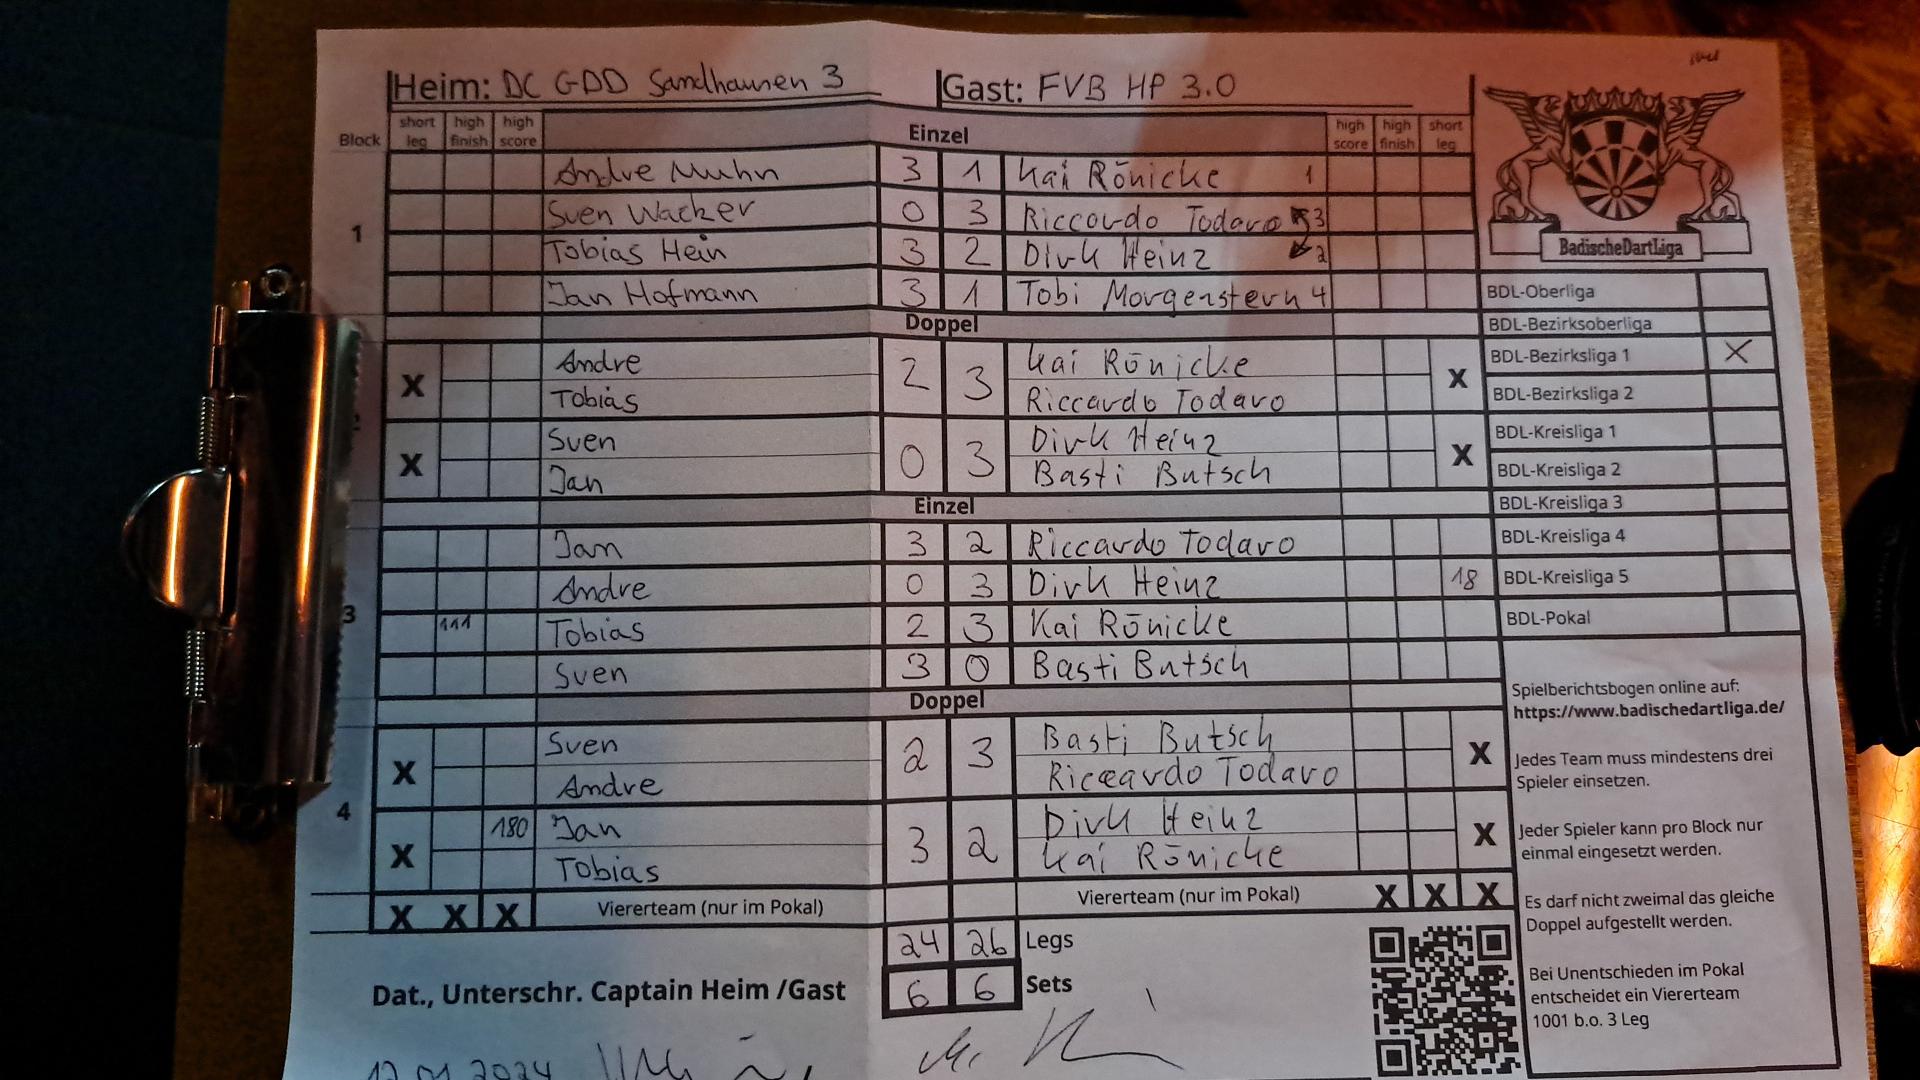 Heim: DC GDD Sandhausen 3 Gast: FVB HP 3.0
Block short leg high finish high score Einzel high score high finish short leg
1
Andre Muhn 3 1 Kai Rönicke 1
Sven Wacker 0 3 Riccardo Todaro 3
Tobias Hein 3 2 Dirk Heinz 2
Jan Hofmann 3 1 Tobi Morgenstern 4
Doppel
2
X Andre 2 3 Kai Rönicke X
Tobias Riccardo Todaro
X Sven 0 3 Dirk Heinz X
Jan Basti Butsch
Einzel
3
Jan 3 2 Riccardo Todaro
Andre 0 3 Dirk Heinz 18
111 Tobias 2 3 Kai Rönicke
Sven 3 0 Basti Butsch
Doppel
4
X Sven 2 3 Basti Butsch X
Andre Riccardo Todaro
X 180 Jan 3 2 Dirk Heinz X
Tobias Kai Rönicke
X X X Vierterteam (nur im Pokal) Viererteam (nur im Pokal) X X X
24 26 Legs
6 6 Sets
Dat., Unterschr. Captain Heim /Gast
12.01.2024
BadischeDartLiga
BDL-Oberliga
BDL-Bezirksoberliga
BDL-Bezirksliga 1 X
BDL-Bezirksliga 2
BDL-Kreisliga 1
BDL-Kreisliga 2
BDL-Kreisliga 3
BDL-Kreisliga 4
BDL-Kreisliga 5
BDL-Pokal
Spielberichtsbogen online auf:
https://www.badischedartliga.de/
Jedes Team muss mindestens drei
Spieler einsetzen.
Jeder Spieler kann pro Block nur
einmal eingesetzt werden.
Es darf nicht zweimal das gleiche
Doppel aufgestellt werden.
Bei Unentschieden im Pokal
entscheidet ein Viererteam
1001 b.o. 3 Leg